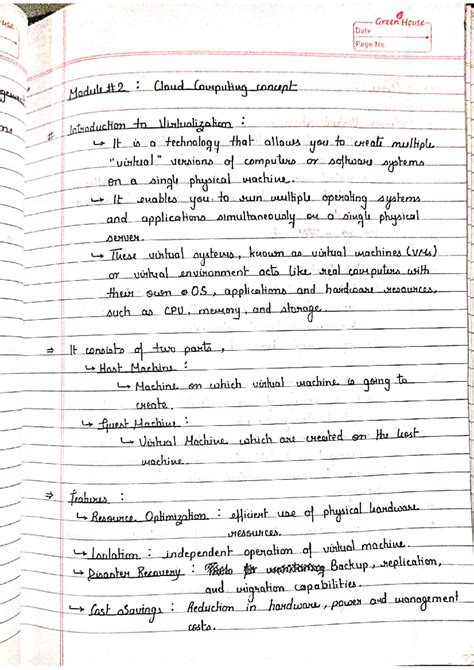 Green House
Date
Page No.
Module #2 : Cloud Computing concept
# Introduction to Virtualization :
↳ It is a technology that allows you to create multiple
"virtual" versions of computers or software systems
on a single physical machine.
↳ It enables you to run multiple operating systems
and applications simultaneously on a single physical
server.
↳ These virtual systems, known as virtual machines (VMs)
or virtual environment acts like real computers with
their own OS, applications and hardware resources,
such as CPU, memory, and storage.
⇒ It consists of two parts,
↳ Host Machine :
↳ Machine on which virtual machine is going to
create.
↳ Guest Machine :
↳ Virtual Machine which are created on the host
machine.
⇒ Features :
↳ Resource Optimization : efficient use of physical hardware
resources.
↳ Isolation : independent operation of virtual machine.
↳ Disaster Recovery : Backup, replication,
and migration capabilities.
↳ Cost Savings : Reduction in hardware, power and management
costs.